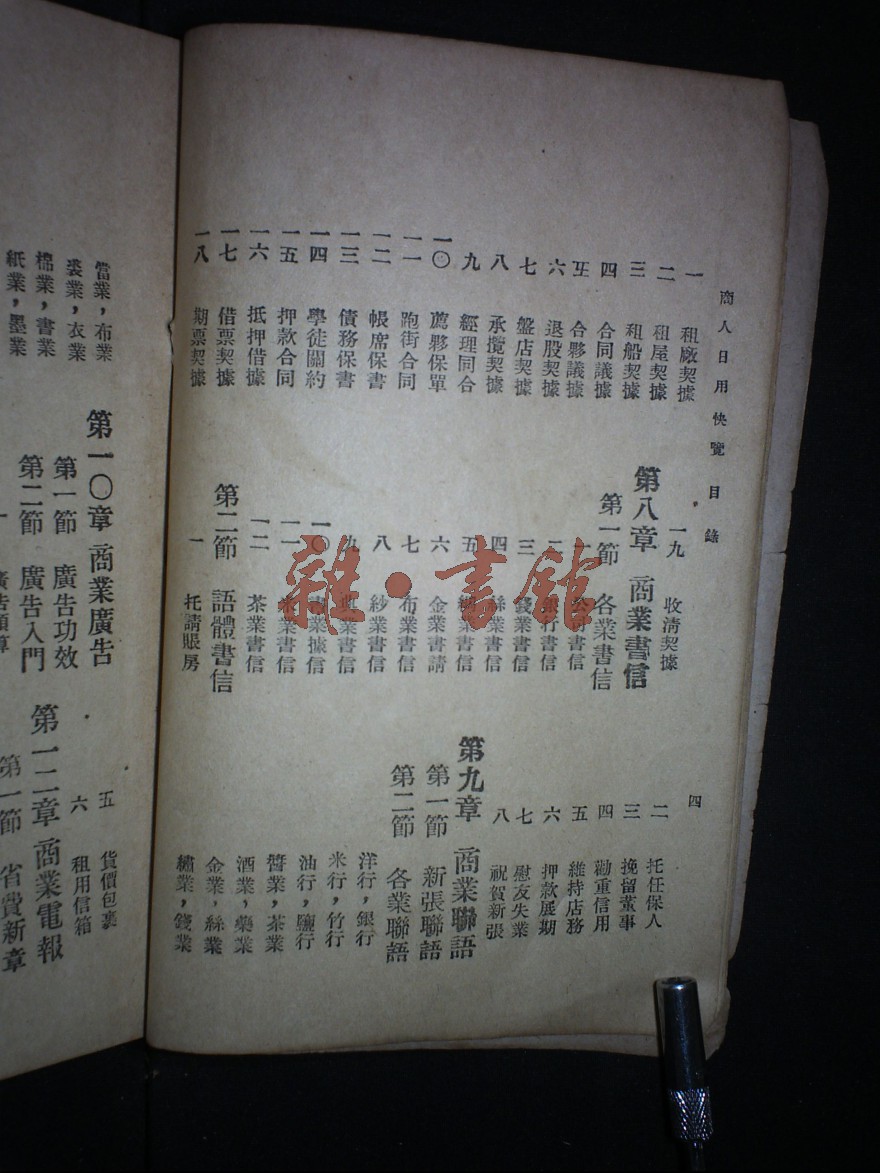 商人日用快覽 目錄
四
一 租廠契據
二 租屋契據
三 租船契據
四 合同議據
五 合夥議據
六 退股契據
七 盤店契據
八 承攬契據
九 經理同合
一〇 薦夥保單
一一 跑街合同
一二 帳席保書
一三 債務保書
一四 學徒關約
一五 押款合同
一六 抵押借據
一七 借票契據
一八 期票契據
一九 收清契據
第八章 商業書信
第一節 各業書信
一 公司書信
二 銀行書信
三 錢業書信
四 絲業書信
五 書信
六 金業書請
七 布業書信
八 紗業書信
九 業書信
一〇 業據信
一一 米業書信
一二 茶業書信
第二節 語體書信
一 托請賬房
二 托任保人
三 挽留董事
四 勸重信用
五 維持店務
六 押款展期
七 慰友失業
八 祝賀新張
第九章 商業聯語
第一節 新張聯語
第二節 各業聯語
洋行，銀行
米行，竹行
油行，鹽行
醬業，茶業
酒業，藥業
金業，絲業
繡業，錢業
當業，布業
裘業，衣業
棉業，書業
紙業，墨業
第一〇章 商業廣告
第一節 廣告功效
第二節 廣告入門
一 廣告預算
五 貨價包裹
六 租用信箱
第一二章 商業電報
第一節 省費新章
雜·書館